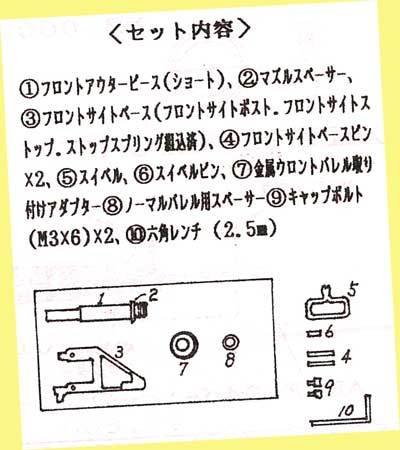 〈セット内容〉
①フロントアウターピース(ショート)、②マズルスペーサー、
③フロントサイトベース(フロントサイトポスト．フロントサイトス
トップ．ストップスプリング組込済)、④フロントサイトベースピン
X2、⑤スイベル、⑥スイベルピン、⑦金属ウロントバレル取り
付けアダプター⑧ノーマルバレル用スペーサー⑨キャップボルト
(M3X6)X2、⑩六角レンチ (2.5㎜)
1
2
3
7
8
5
6
4
9
10